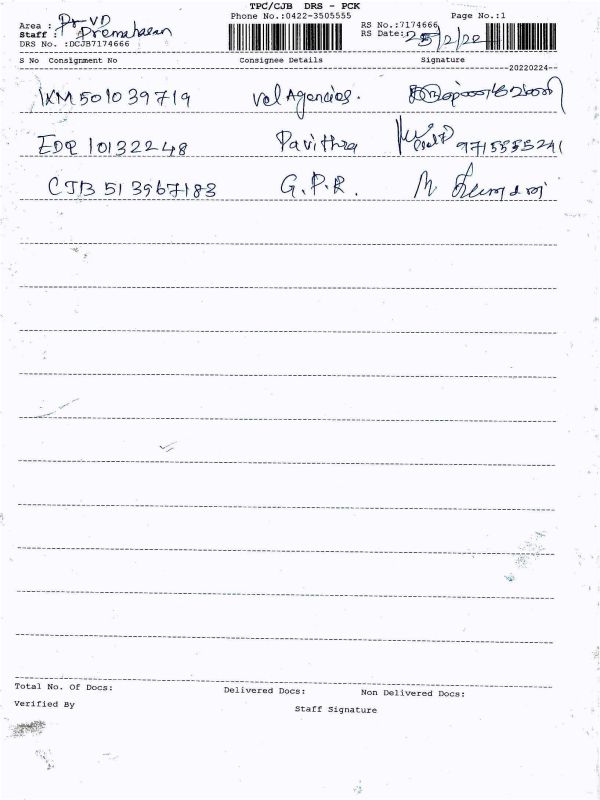 TPC/CJB DRS - PCK
Area : Pr VD Phone No.:0422-3505555 RS No.:7174666 Page No.:1
Staff : Premahasan RS Date: 25/2/22
DRS No. :DCJB7174666
S No Consignment No Consignee Details Signature
--20220224--
IXM501039719 vel Agencies.
EDQ 10132248 Pavithra 9715555241
CJB 513967183 G.P.R.
Total No. Of Docs: Delivered Docs: Non Delivered Docs:
Verified By Staff Signature